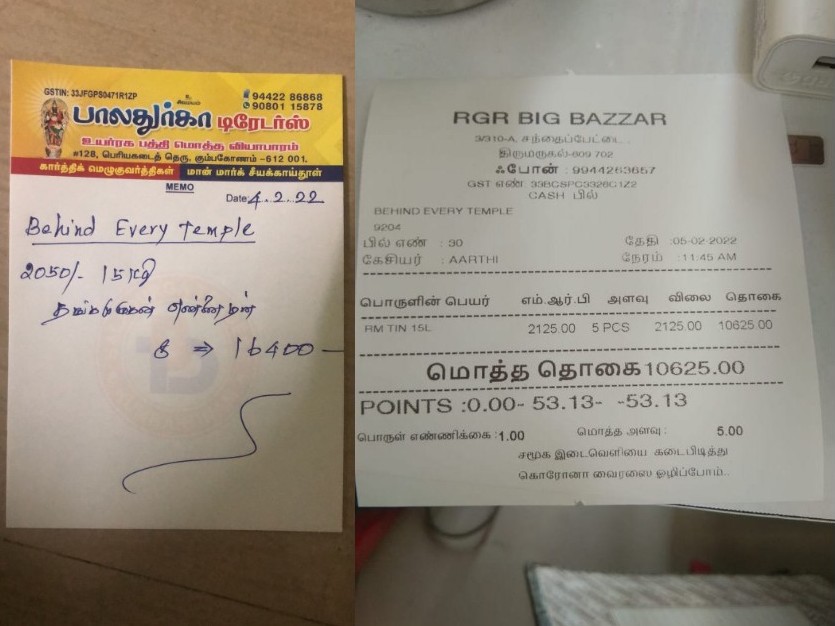 GSTIN: 33JFGPS0471R1ZP
உ
சிவமயம்
94422 86868
90801 15878
பாலதுர்கா டிரேடர்ஸ்
உயர்ரக பத்தி மொத்த வியாபாரம்
#128, பெரியகடைத் தெரு, கும்பகோணம் -612 001.
கார்த்திக் மெழுகுவர்த்திகள் மான் மார்க் சீயக்காய்தூள்
MEMO
Date: 4.2.22
Behind Every Temple
2050/- 15 கி
8 ⇒ 16400 —
RGR BIG BAZZAR
3/310-A, சந்தைப்பேட்டை..
திருமருகல்-609 702
ஃபோன் : 9944263657
GST எண்: 33BCSPC3326C1Z2
CASH பில்
BEHIND EVERY TEMPLE
9204
பில் எண் : 30 தேதி :05-02-2022
கேசியர் : AARTHI நேரம் :11:45 AM
பொருளின் பெயர் எம்.ஆர்.பி அளவு விலை தொகை
RM TIN 15L 2125.00 5 PCS 2125.00 10625.00
மொத்த தொகை 10625.00
POINTS :0.00- 53.13- -53.13
பொருள் எண்ணிக்கை :1.00 மொத்த அளவு : 5.00
சமூக இடைவெளியை கடைபிடித்து
கொரோனா வைரஸை ஒழிப்போம்..